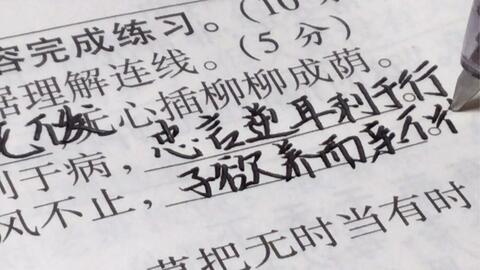 容完成练习。(10
理解连线。(5 分)
不发 心插柳柳成荫。
于病,忠言逆耳利于行。
风不止,子欲养而亲不
把无时当有时